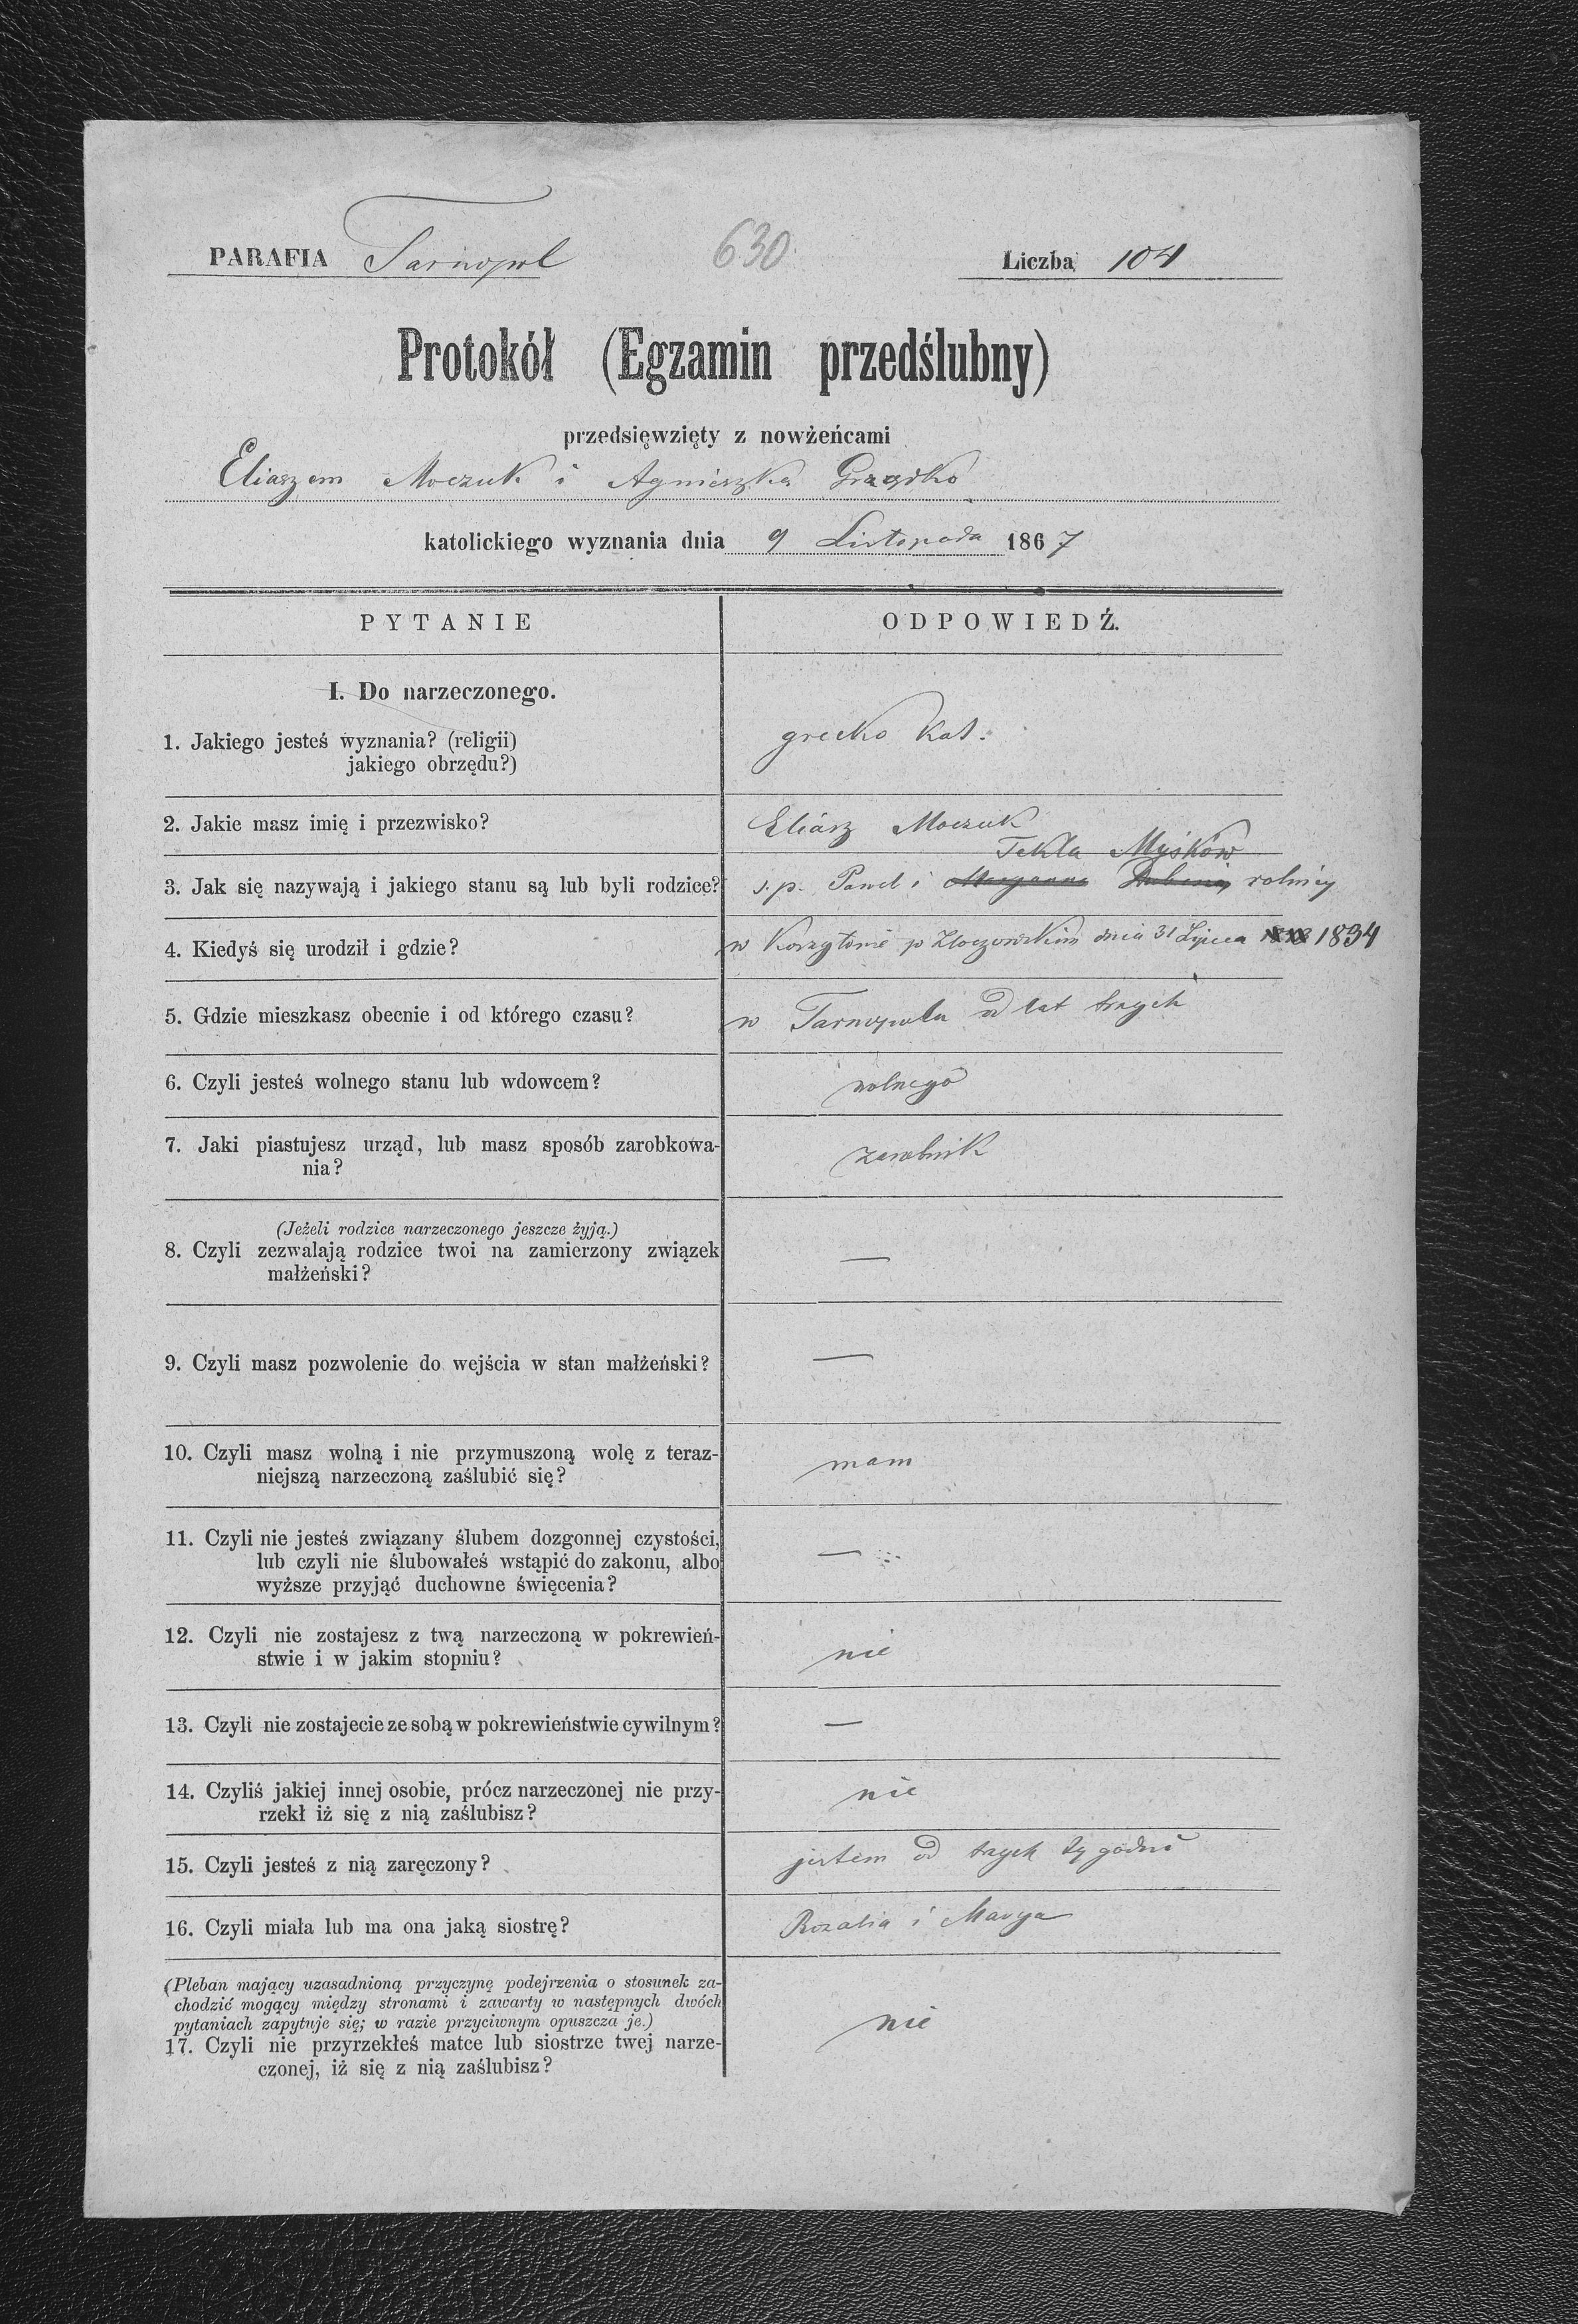 PARAFIA Tarnopol 630 Liczba 104
Protokół (Egzamin przedślubny)
przedsięwzięty z nowżeńcami
Eliaszem Moczuk i Agnieszka
katolickiego wyznania dnia 9 Listopada 1867
PYTANIE ODPOWIEDŹ.
I. Do narzeczonego.
1. Jakiego jesteś wyznania? (religii)
jakiego obrzędu?)
grecko kat.
2. Jakie masz imię i przezwisko?
Eliasz Moczuk
Tekla Myśków
3. Jak się nazywają i jakiego stanu są lub byli rodzice?
s. p. Pawel i Maryanna rolnicy
4. Kiedyś się urodził i gdzie?
w p Zloczowskim dnia 31 Lipca 1834
5. Gdzie mieszkasz obecnie i od którego czasu?
w Tarnopolu od lat trzech
6. Czyli jesteś wolnego stanu lub wdowcem?
wolnego
7. Jaki piastujesz urząd, lub masz sposób zarobkowa-
nia?
zarobnik
(Jeżeli rodzice narzeczonego jeszcze żyją.)
8. Czyli zezwalają rodzice twoi na zamierzony związek
małżeński?
—
9. Czyli masz pozwolenie do wejścia w stan małżeński?
—
10. Czyli masz wolną i nie przymuszoną wolę z teraz-
niejszą narzeczoną zaślubić się?
mam
11. Czyli nie jesteś związany ślubem dozgonnej czystości,
lub czyli nie ślubowałeś wstąpić do zakonu, albo
wyższe przyjąć duchowne święcenia?
—
12. Czyli nie zostajesz z twą narzeczoną w pokrewień-
stwie i w jakim stopniu?
nie
13. Czyli nie zostajecie ze sobą w pokrewieństwie cywilnym?
—
14. Czyliś jakiej innej osobie, prócz narzeczonej nie przy-
rzekł iż się z nią zaślubisz?
nie
15. Czyli jesteś z nią zaręczony?
jestem od trzech tygodni
16. Czyli miała lub ma ona jaką siostrę?
Rozalia i Marya
(Pleban mający uzasadnioną przyczynę podejrzenia o stosunek za-
chodzić mogący między stronami i zawarty w następnych dwóch
pytaniach zapytuje się; w razie przyciwnym opuszcza je.)
17. Czyli nie przyrzekłeś matce lub siostrze twej narze-
czonej, iż się z nią zaślubisz?
nie